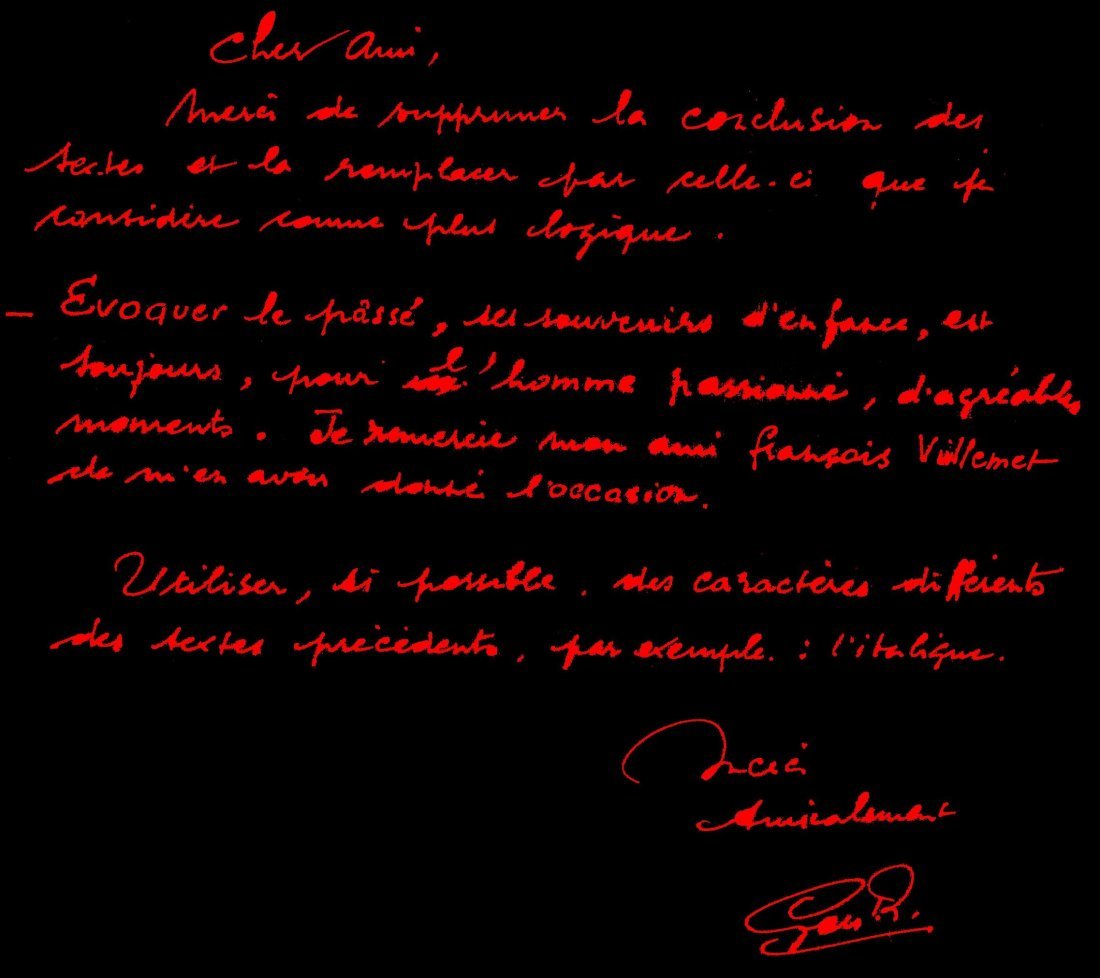 Cher Ami,
Merci de supprimer la conclusion des
textes et la remplacer par celle-ci que je
considère comme plus logique.
– Evoquer le passé, ses souvenirs d'enfance, est
toujours, pour l'homme passionné, d'agréables
moments. Je remercie mon ami françois Vuillemet
de m'en avoir donné l'occasion.
Utiliser, si possible, des caractères différents
des textes précédents, par exemple : l'italique.
Merci
Amicalement